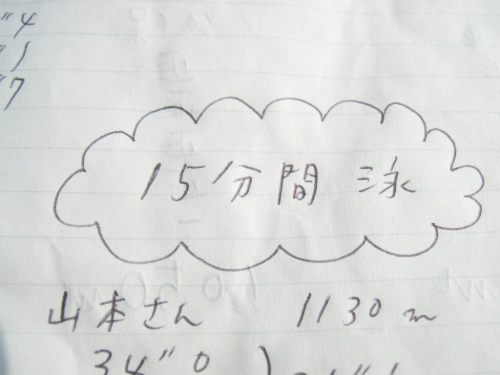 "4
"1
"7
15分間 泳
山本さん 1130m
34"0 )